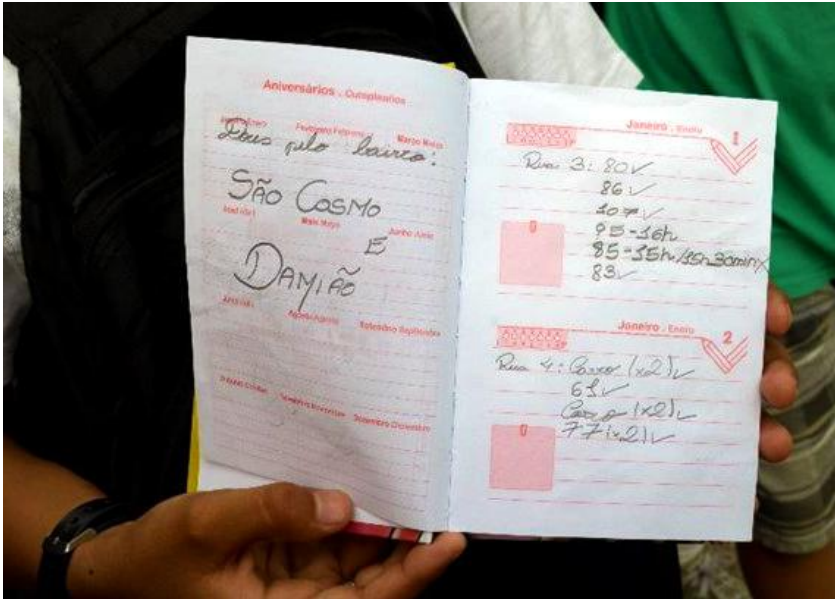 Aniversários . Cumpleaños
Fevereiro Febrero Março Marzo
pelo bairro:
SÃO COSMO
Abril Abril Maio Mayo Junho Junio
E
DAMIÃO
Agosto Agosto Setembro Septiembre
Outubro Octubre Novembro Noviembre Dezembro Diciembre
Janeiro . Enero 1
Rua 3: 80✓
86✓
107✓
95-16h
85-15h/15h30minX
83✓
Janeiro . Enero 2
Rua 4: Carro (x2)✓
61✓
Carro (x2)✓
77(x2)✓